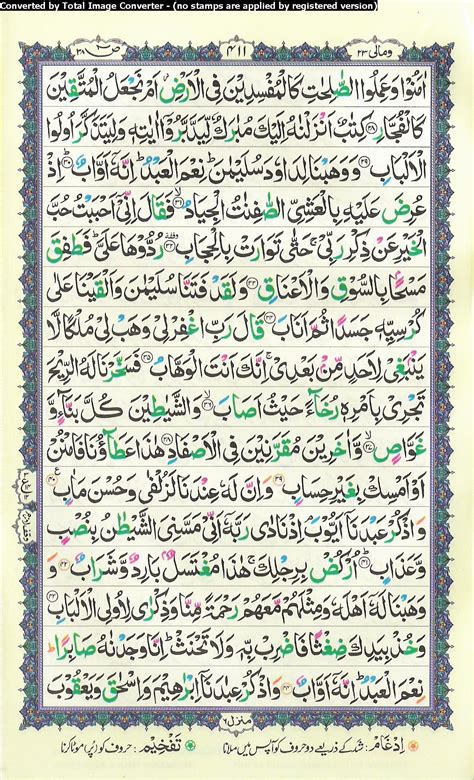 Converted by Total Image Converter - (no stamps are applied by registered version)
ومالی ۲۳ ۴۱۱ صٓ ۳۸
اٰمَنُوْا وَعَمِلُوا الصّٰلِحٰتِ كَالْمُفْسِدِيْنَ فِي الْاَرْضِ اَمْ نَجْعَلُ الْمُتَّقِيْنَ
كَالْفُجَّارِ ۲۸ كِتٰبٌ اَنْزَلْنٰهُ اِلَيْكَ مُبٰرَكٌ لِّيَدَّبَّرُوْۤا اٰيٰتِهٖ وَلِيَتَذَكَّرَ اُولُوا
الْاَلْبَابِ ۲۹ وَوَهَبْنَا لِدَاوٗدَ سُلَيْمٰنَ ؕ نِعْمَ الْعَبْدُ ؕ اِنَّهٗۤ اَوَّابٌ ؕ ۳۰ اِذْ
عُرِضَ عَلَيْهِ بِالْعَشِيِّ الصّٰفِنٰتُ الْجِيَادُ ۙ ۳۱ فَقَالَ اِنِّيْۤ اَحْبَبْتُ حُبَّ
الْخَيْرِ عَنْ ذِكْرِ رَبِّيْ ۚ حَتّٰى تَوَارَتْ بِالْحِجَابِ ۳۲ رُدُّوْهَا عَلَيَّ ؕ فَطَفِقَ
مَسْحًۢا بِالسُّوْقِ وَالْاَعْنَاقِ ۳۳ وَلَقَدْ فَتَنَّا سُلَيْمٰنَ وَاَلْقَيْنَا عَلٰى
كُرْسِيِّهٖ جَسَدًا ثُمَّ اَنَابَ ۳۴ قَالَ رَبِّ اغْفِرْ لِيْ وَهَبْ لِيْ مُلْكًا لَّا
يَنْۢبَغِيْ لِاَحَدٍ مِّنْۢ بَعْدِيْ ۚ اِنَّكَ اَنْتَ الْوَهَّابُ ۳۵ فَسَخَّرْنَا لَهُ الرِّيْحَ
تَجْرِيْ بِاَمْرِهٖ رُخَآءً حَيْثُ اَصَابَ ۙ ۳۶ وَالشَّيٰطِيْنَ كُلَّ بَنَّآءٍ وَّ
غَوَّاصٍ ۙ ۳۷ وَّاٰخَرِيْنَ مُقَرَّنِيْنَ فِي الْاَصْفَادِ ۳۸ هٰذَا عَطَآؤُنَا فَامْنُنْ
اَوْ اَمْسِكْ بِغَيْرِ حِسَابٍ ۳۹ وَاِنَّ لَهٗ عِنْدَنَا لَزُلْفٰى وَحُسْنَ مَاٰبٍ ۴۰
وَاذْكُرْ عَبْدَنَاۤ اَيُّوْبَ ۘ اِذْ نَادٰى رَبَّهٗۤ اَنِّيْ مَسَّنِيَ الشَّيْطٰنُ بِنُصْبٍ
وَّعَذَابٍ ؕ ۴۱ اُرْكُضْ بِرِجْلِكَ ۚ هٰذَا مُغْتَسَلٌۢ بَارِدٌ وَّشَرَابٌ ۴۲ وَ
وَهَبْنَا لَهٗۤ اَهْلَهٗ وَمِثْلَهُمْ مَّعَهُمْ رَحْمَةً مِّنَّا وَذِكْرٰى لِاُولِي الْاَلْبَابِ ۴۳
وَخُذْ بِيَدِكَ ضِغْثًا فَاضْرِبْ بِّهٖ وَلَا تَحْنَثْ ؕ اِنَّا وَجَدْنٰهُ صَابِرًا ؕ
نِعْمَ الْعَبْدُ ؕ اِنَّهٗۤ اَوَّابٌ ۴۴ وَاذْكُرْ عِبٰدَنَاۤ اِبْرٰهِيْمَ وَاِسْحٰقَ وَيَعْقُوْبَ
منزل ۶
اِدْغَام: شد کے ذریعے دو حروف کو آپس میں ملانا تَفْخِيْم: حروف کو (پُر) موٹا کرنا